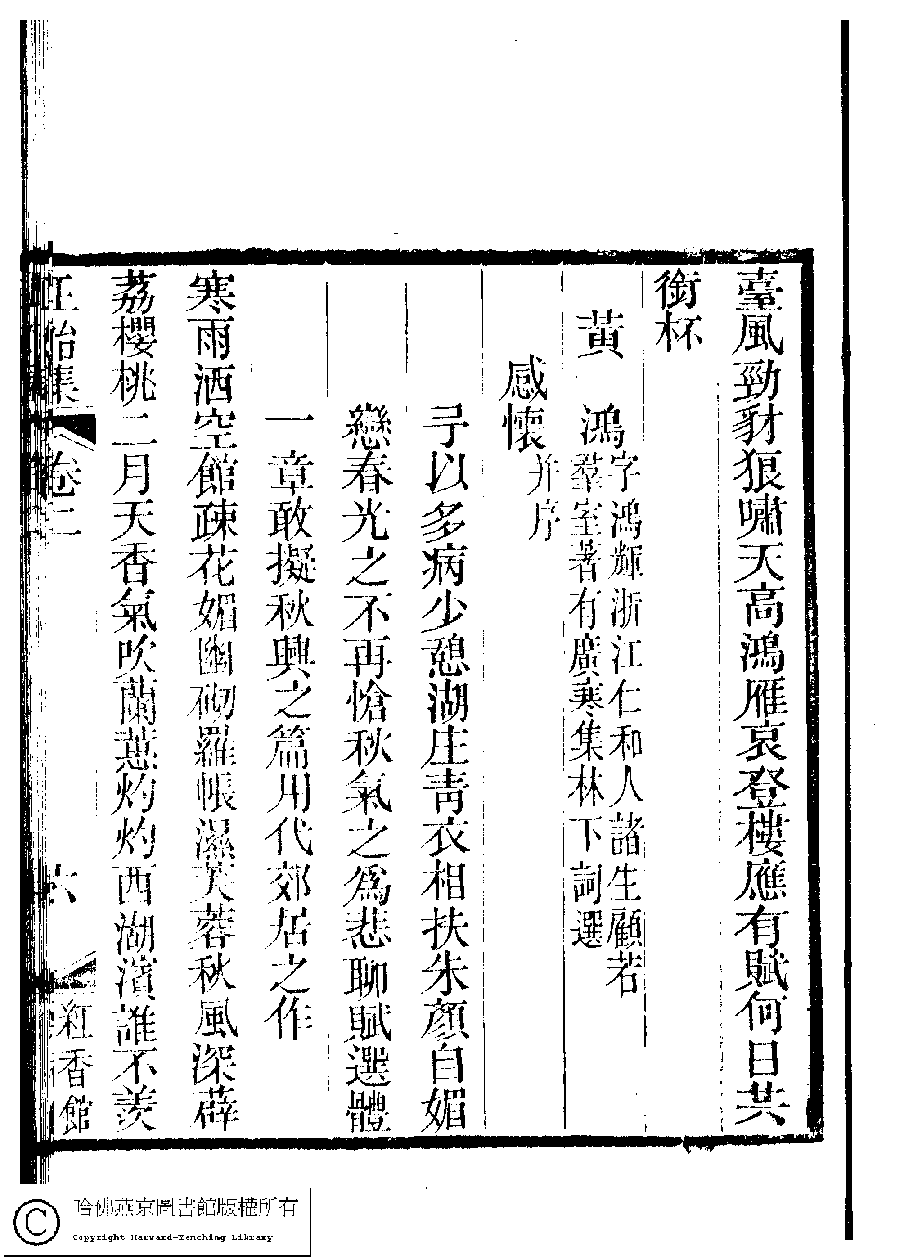 臺風勁豺狼嘯天高鴻雁哀登樓應有賦何日共
銜杯
黃鴻
字鴻輝浙江仁和人諸生顧若
羣室著有廣寒集林下詞選
感懷并序
予以多病少憩湖庄靑衣相扶朱顏自媚
戀春光之不再愴秋氣之爲悲聊賦選體
一章敢擬秋興之篇用代郊居之作
寒雨洒空館疎花媚幽砌羅帳濕芙蓉秋風深薜
荔櫻桃二月天香氣吹蘭蕙灼灼西湖濱誰不羨
卷二
六
紅香館
哈佛燕京圖書館版權所有
Copyright Harvard-Yenching Library